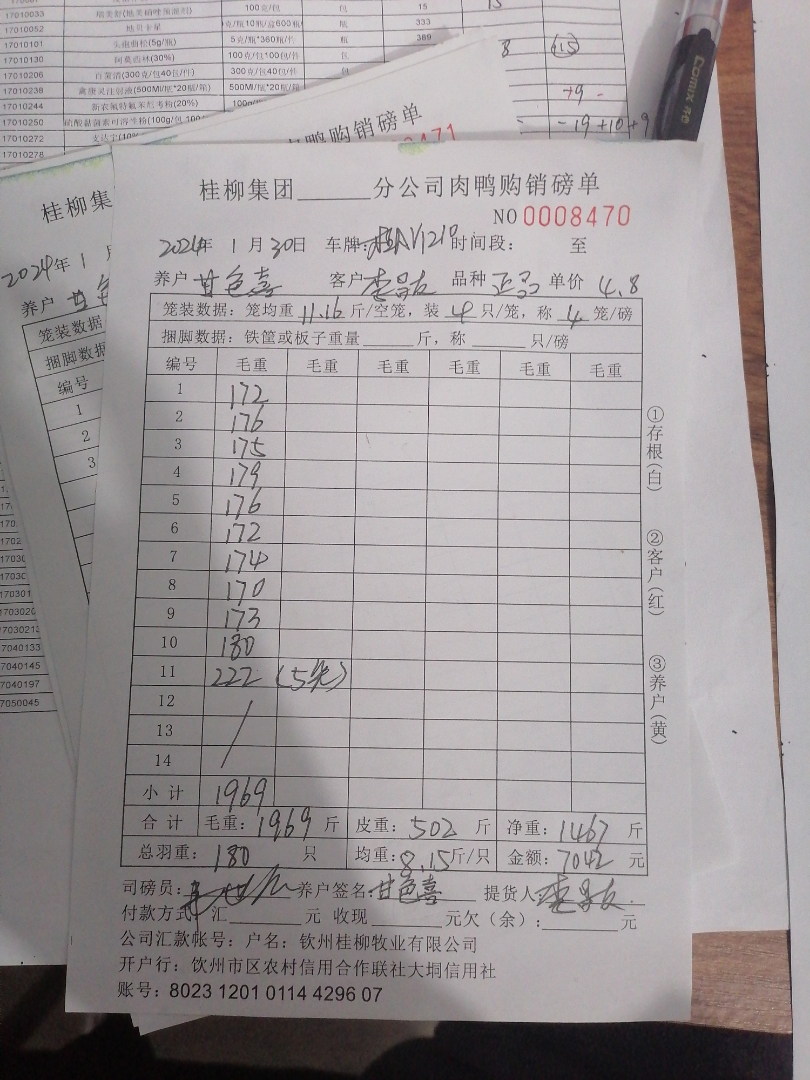 17010033
100克/包
包
15
15
17010052
地贝卡星
瓶
333
17010101
头孢曲松(5g/瓶)
5克/瓶*360瓶/件
瓶
389
8
(15)
17010130
阿莫西林(30%)
100克/包*100包/件
包
17010206
百菌消(300克/包40包/件)
300克/包40包/件
+9 -
17010238
禽康灵注射液(500Ml/瓶*20瓶/箱)
500Ml/瓶*20瓶/箱
17010244
-19+10+9
17010250
17010272
17010278
Comix
肉鸭购销磅单
桂柳集
2024年 1 月
养户
笼装数据
捆脚数据
编号
1
2
3
桂柳集团______分公司肉鸭购销磅单
NO 0008470
2024年 1 月 30 日 车牌: 时间段: 至
养户 甘色喜 客户 品种 单价 4.8
笼装数据: 笼均重 11.16 斤/空笼, 装 4 只/笼, 称 4 笼/磅
捆脚数据: 铁筐或板子重量______斤, 称______只/磅
编号 毛重 毛重 毛重 毛重 毛重 毛重
1 172
2 176
3 175
4 179
5 176
6 172
7 174
8 170
9 173
10 180
11 222 (5笼)
12
13
14
小计 1969
合计 毛重: 1969 斤 皮重: 502 斤 净重: 1467 斤
总羽重: 180 只 均重: 8.15 斤/只 金额: 7042 元
司磅员: 养户签名: 甘色喜 提货人
付款方式: 汇______元 收现______元欠(余):______元
公司汇款帐号: 户名: 钦州桂柳牧业有限公司
开户行: 钦州市区农村信用合作联社大垌信用社
账号: 8023 1201 0114 4296 07
①存根(白)
②客户(红)
③养户(黄)
7040133
7040145
7040197
7050045